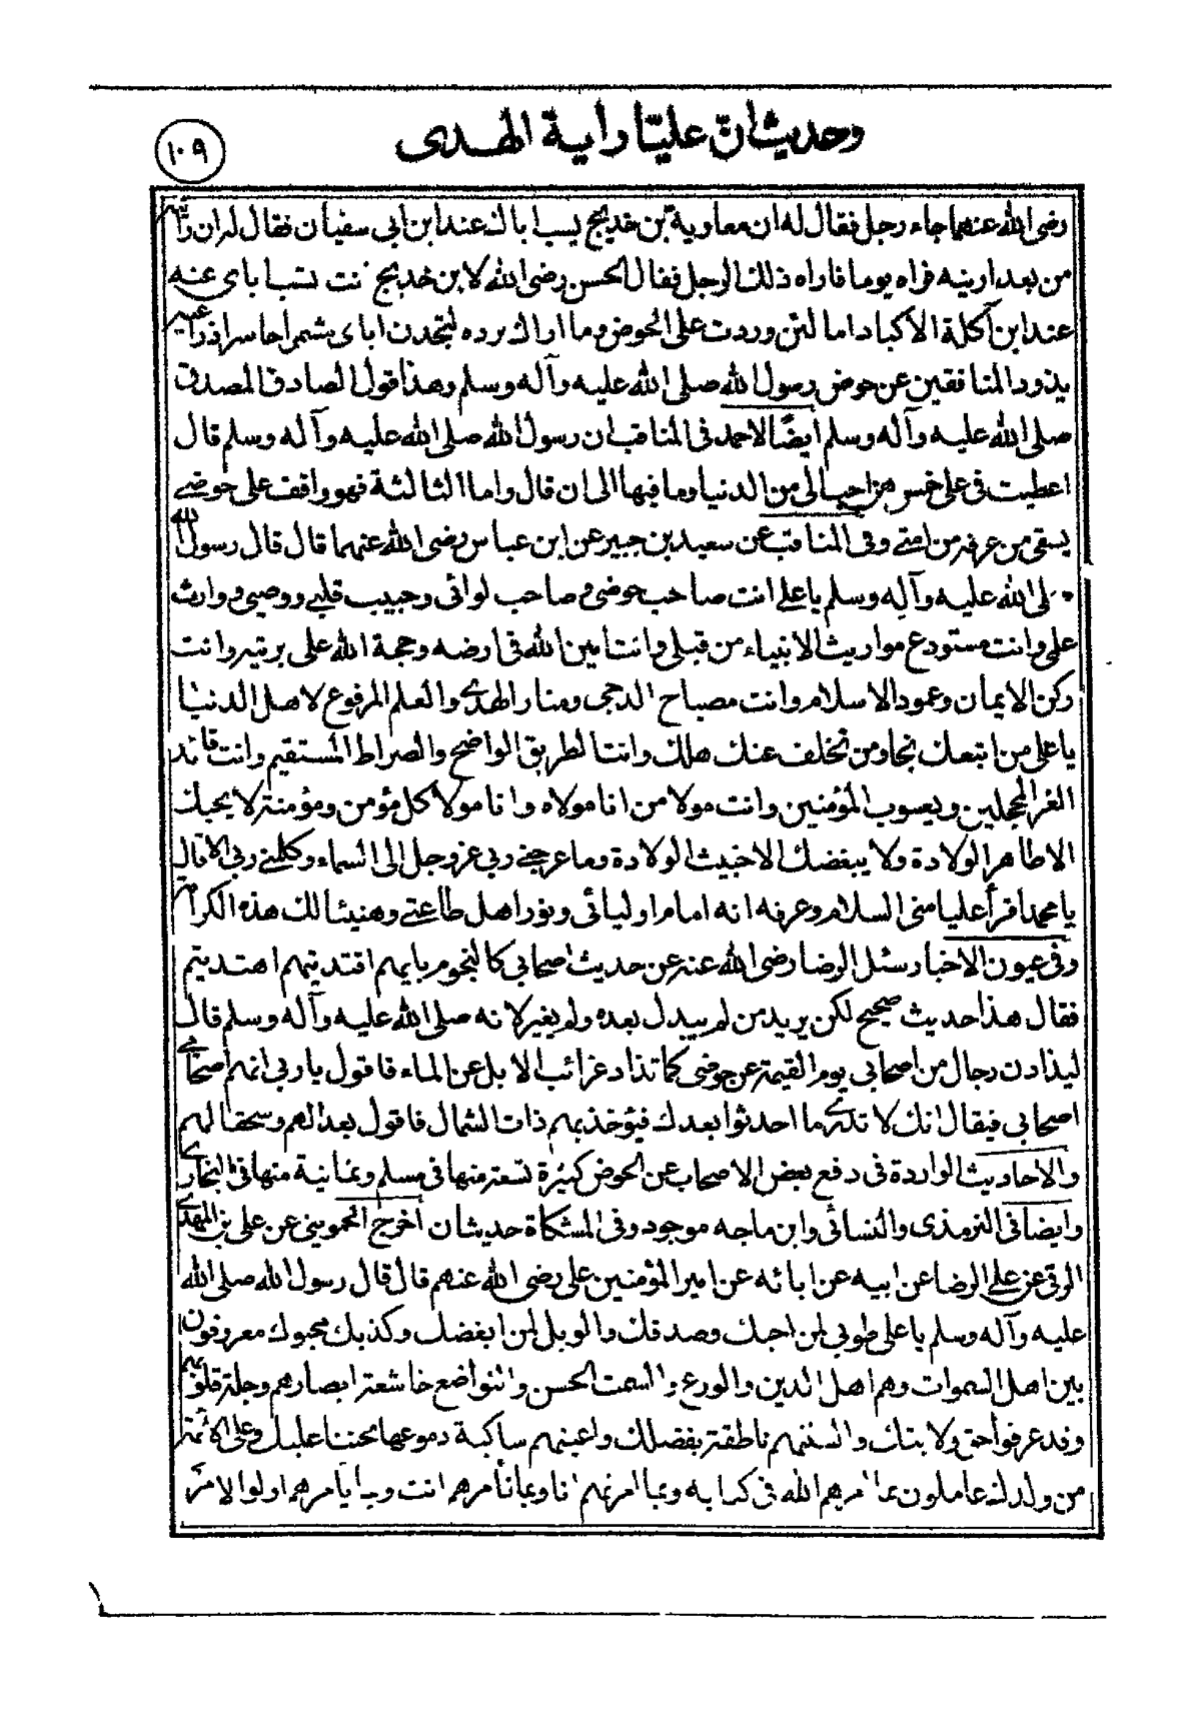 وحديث ان عليّا راية الهدى
١٠٩
رضى الله عنهما جاء رجل فقال له ان معاوية بن خديج يسب اباك عند ابن ابى سفيان فقال له ان رأيته
من بعد ارينيه فراه يوما فاراه ذلك الرجل فقال الحسن رضى الله لابن خديج انت تسب اباى عنه
عند ابن آكلة الاكباد اما لئن وردت على الحوض وما اراك ترده لتجدن اباى مشمرا حاسرا ذراعيه
يذود المنافقين عن حوض رسول الله صلى الله عليه وآله وسلم وهذا قول الصادق المصدق
صلى الله عليه وآله وسلم ايضًا لاحمد فى المناقب ان رسول الله صلى الله عليه وآله وسلم قال
اعطيت فى على خمس هن احب الى من الدنيا وما فيها الى ان قال واما الثالثة فهو واقف على حوضى
يسقى من عرفه من امتى وفى المناقب عن سعيد بن جبير عن ابن عباس رضى الله عنهما قال قال رسول الله
صلى الله عليه وآله وسلم يا على انت صاحب حوضى وصاحب لوائى وحبيب قلبى ووصيى ووارث
علمى وانت مستودع مواريث الانبياء من قبلى وانت امين الله فى ارضه وحجة الله على بريته وانت
ركن الايمان وعمود الاسلام وانت مصباح الدجى ومنار الهدى والعلم المرفوع لاهل الدنيا
يا على من اتبعك نجا ومن تخلف عنك هلك وانت الطريق الواضح والصراط المستقيم وانت قائد
الغر المحجلين ويعسوب المؤمنين وانت مولا من انا مولاه وانا مولا كل مؤمن ومؤمنة لا يحبك
الا طاهر الولادة ولا يبغضك الا خبيث الولادة وما عرجنى ربى عز وجل الى السماء وكلمنى ربى الا قال
يا محمد اقرأ عليا منى السلام وعرفه انه امام اوليائى ونور اهل طاعتى وهنيئا لك هذه الكرامة
وفى عيون الاخبار سئل الرضا رضى الله عنه عن حديث اصحابى كالنجوم بايهم اقتديتم اهتديتم
فقال هذا حديث صحيح لكن يريد من لم يبدل بعده ولم يغير لانه صلى الله عليه وآله وسلم قال
ليذادن رجال من اصحابى يوم القيمة عن حوضى كما تذاد غرائب الابل عن الماء فاقول يا ربى انهم اصحابى
اصحابى فيقال انك لا تدرى ما احدثوا بعدك فيؤخذ بهم ذات الشمال فاقول بعدا لهم وسحقا لهم
والاحاديث الواردة فى دفع بعض الاصحاب عن الحوض كثيرة تسعة منها فى مسلم وثمانية منها فى البخارى
وايضا فى الترمذى والنسائى وابن ماجه موجود وفى المشكاة حديثان اخرج الحموينى عن على بن المهدى
الرقى عن على الرضا عن ابيه عن ابائه عن امير المؤمنين على رضى الله عنهم قال قال رسول الله صلى الله
عليه وآله وسلم يا على طوبى لمن احبك وصدقك والويل لمن ابغضك وكذبك محبوك معروفون
بين اهل السموات وهم اهل الدين والورع والسمت الحسن والتواضع خاشعة ابصارهم وجلة قلوبهم
وقد عرفوا حق ولايتك والسنتهم ناطقة بفضلك واعينهم ساكبة دموعها تحننا عليك وعلى الائمة
من ولدك عاملون بما امرهم الله فى كتابه وبما امرتهم انا وبما تأمرهم انت وبما يأمرهم اولوا الامر